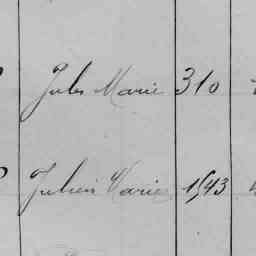 Jules Marie 310
Julien Marie 1543